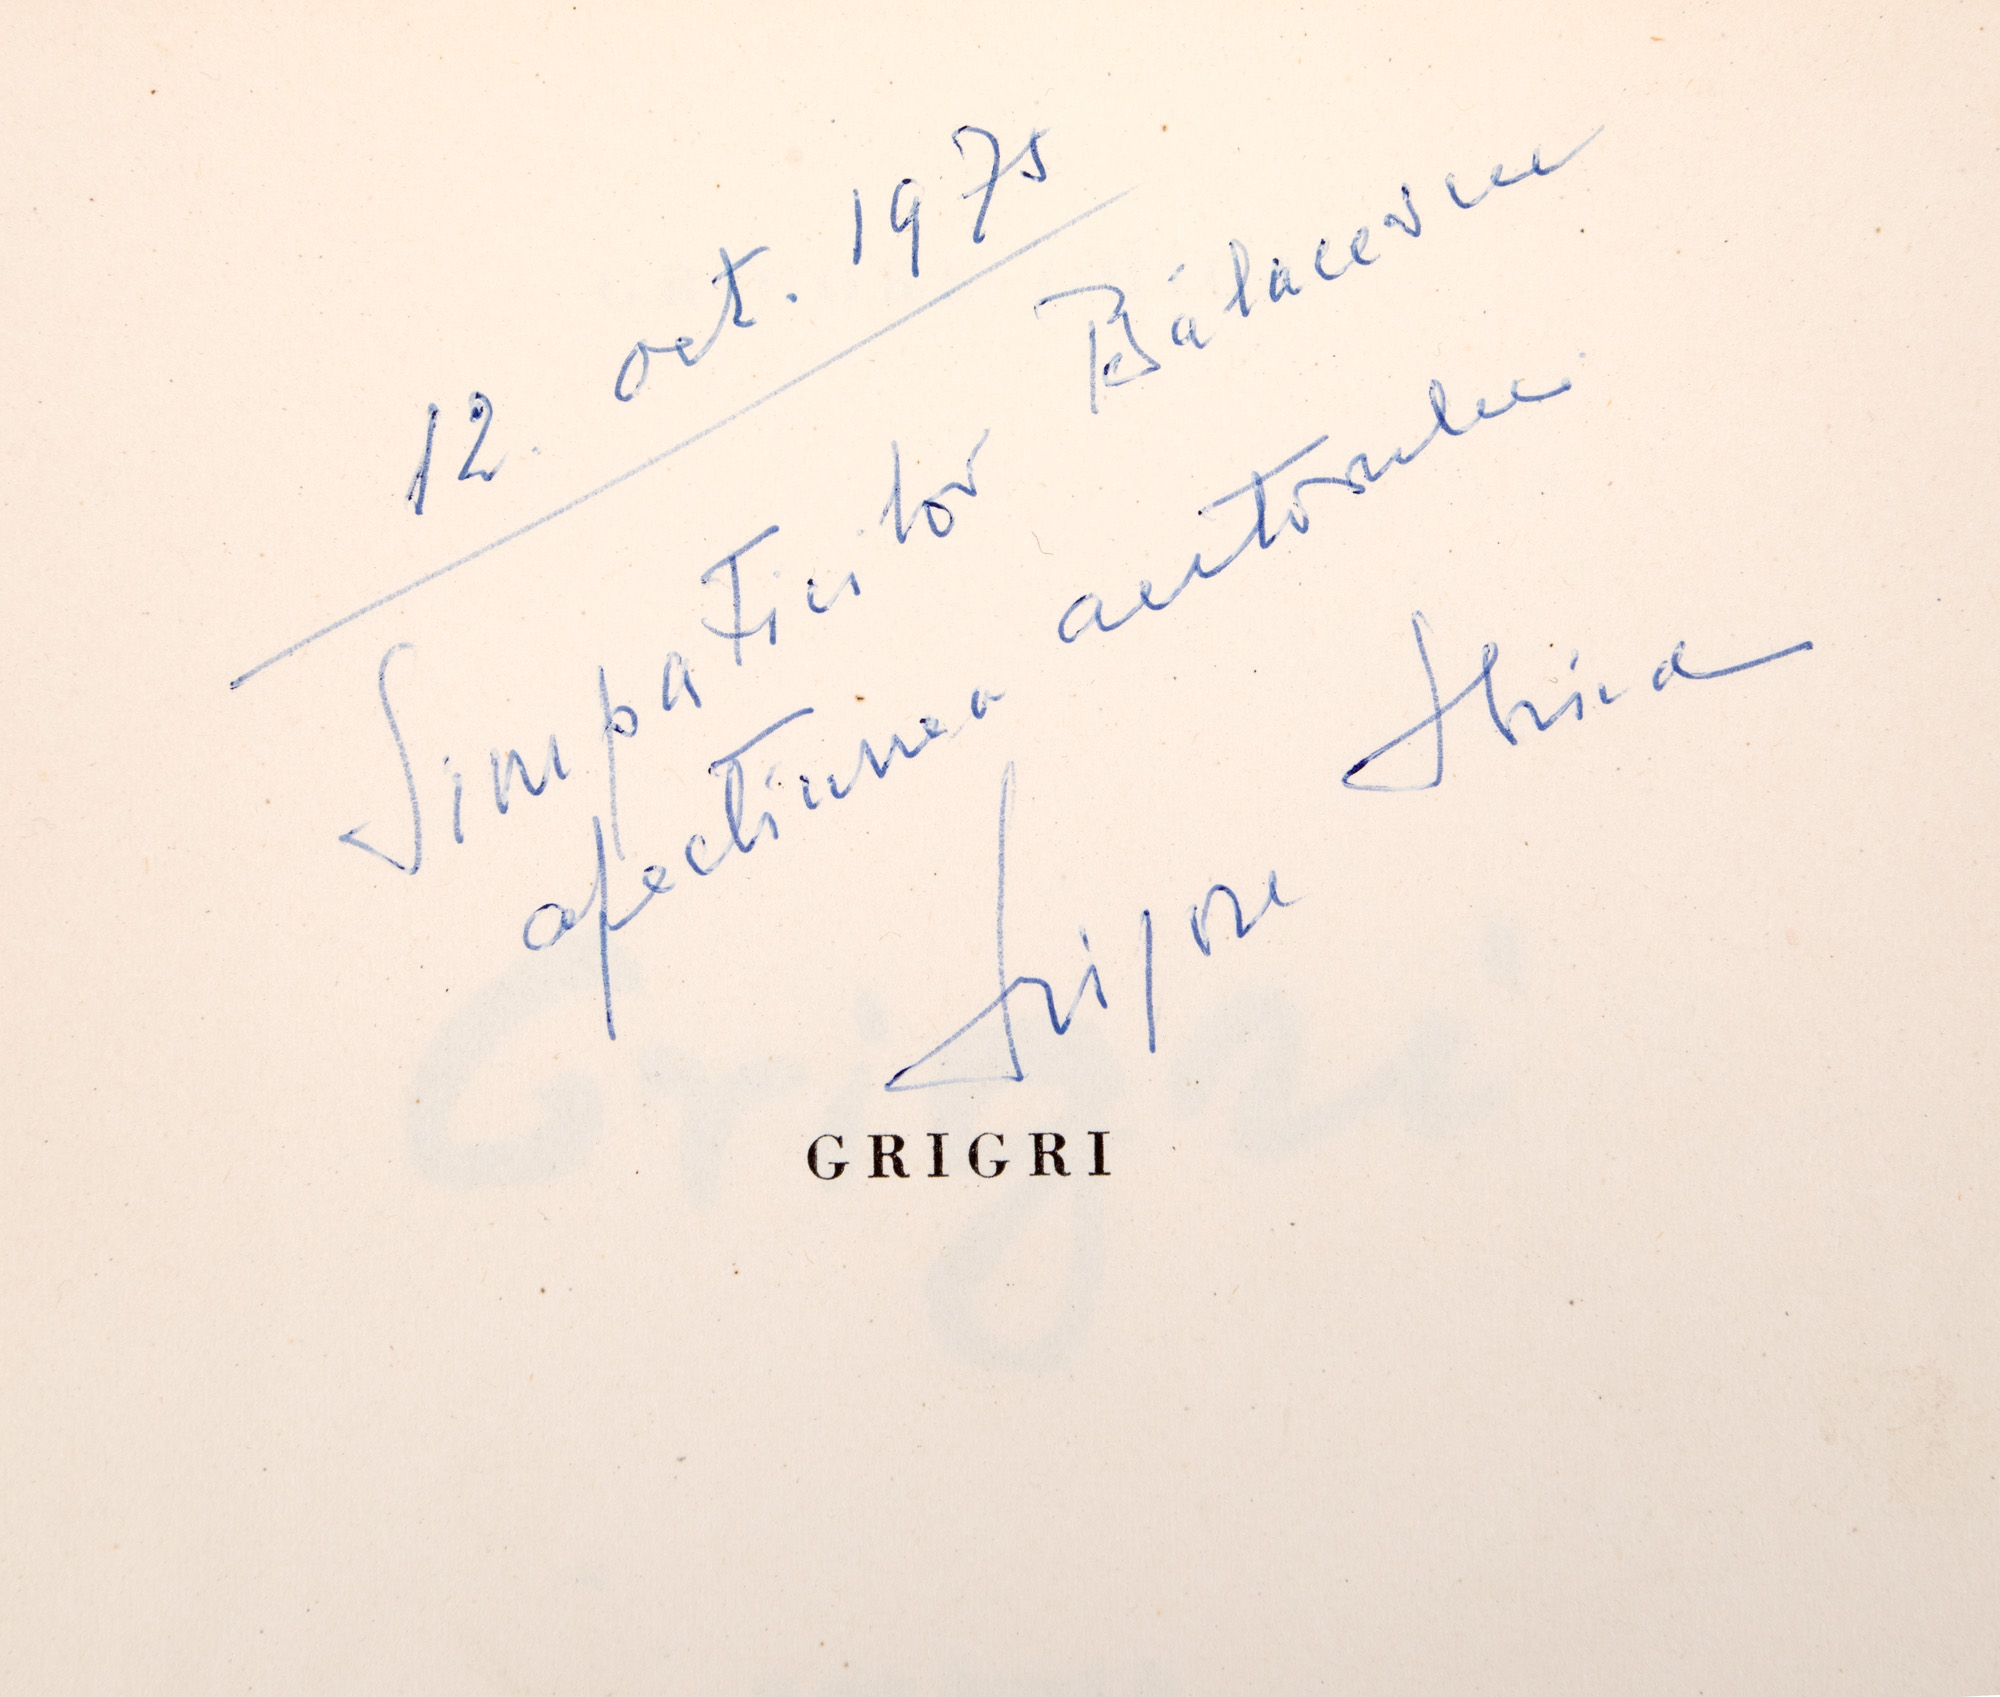 12. oct. 1975
Simpaticilor Bălăcescu
afecțiunea autorului
Grigore
GRIGRI